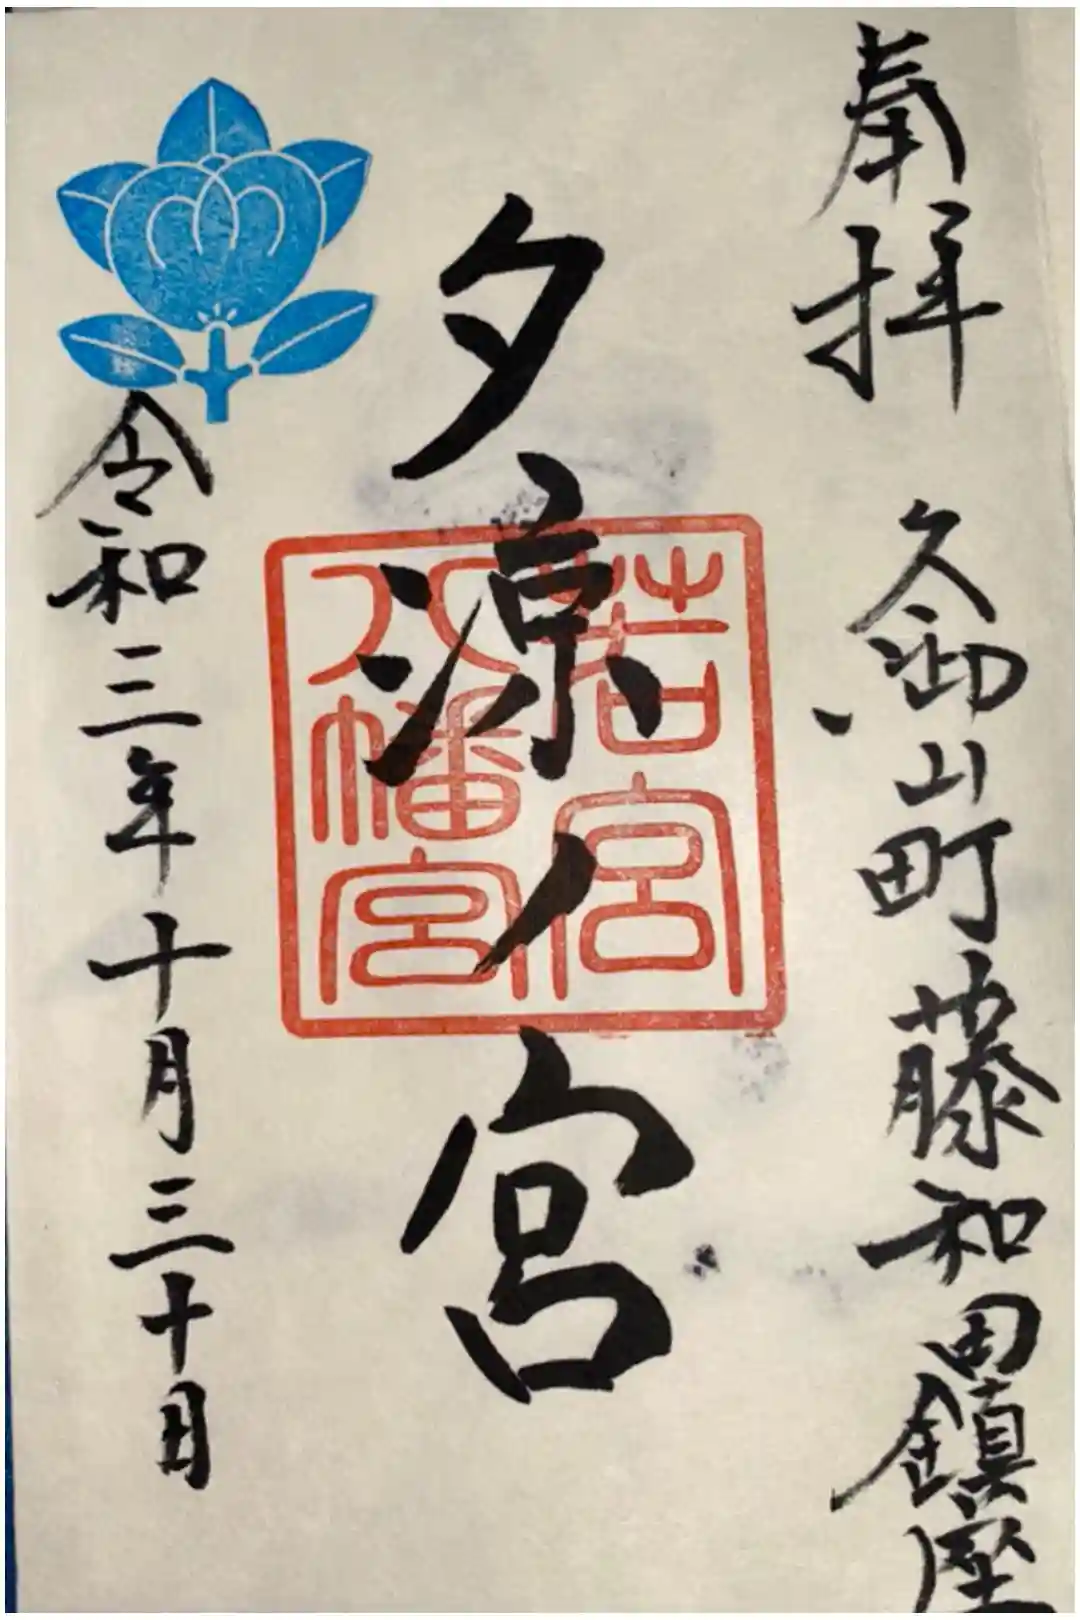 奉拝
久御山町藤和田鎮座
夕凉ノ宮
若宮
八幡宮
令和三年十月三十日